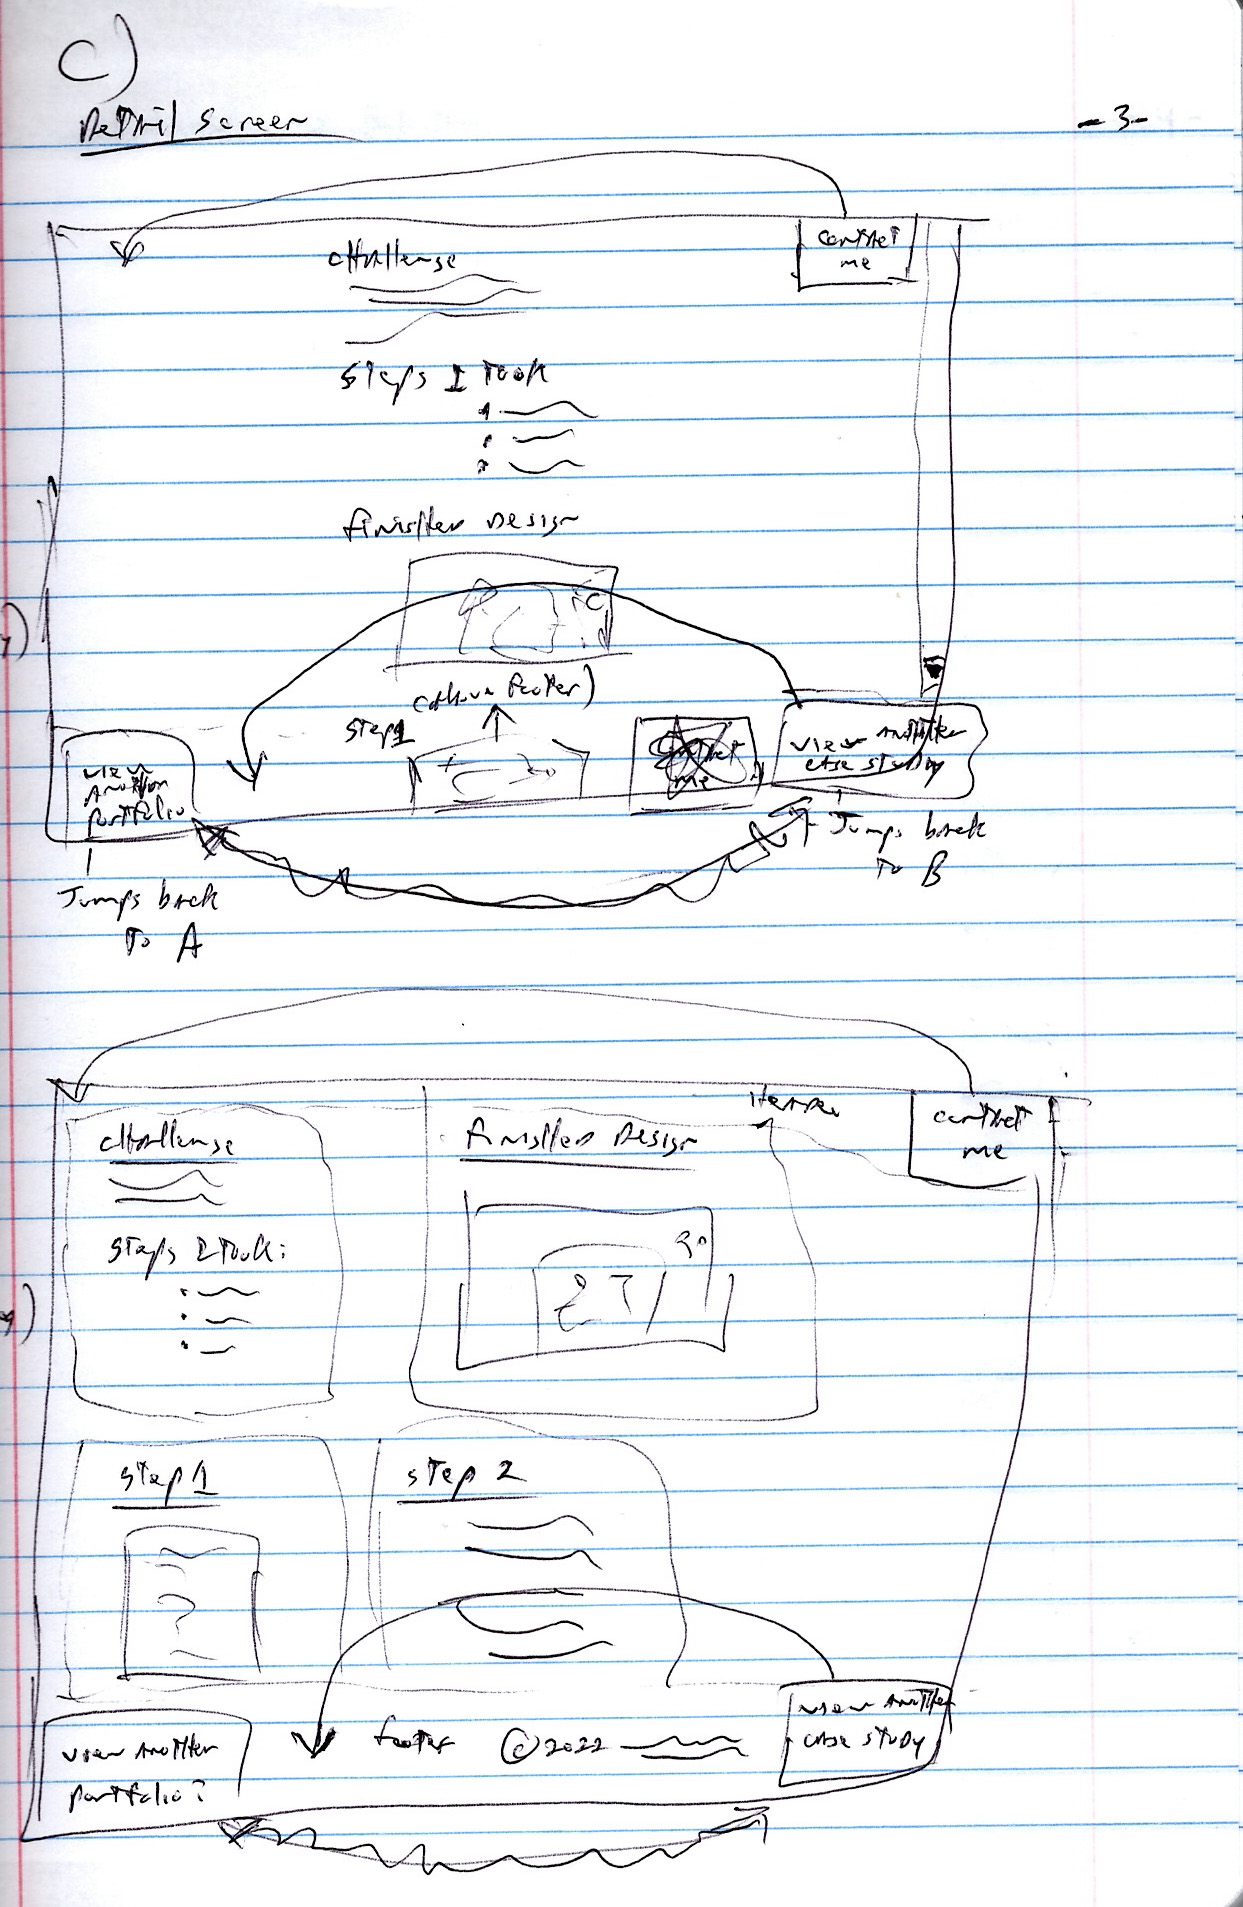 C)
Detail screen
-3-
Contact
me
Challenge
Steps I Took
finished Design
(above footer)
Step1
View
Another
portfolio
me
View Another
case study
Jumps back
To A
Jumps back
To B
Header
Contact
me
Challenge
finished Design
Steps I Took:
Step 1
Step 2
View Another
portfolio?
footer ©2022
View Another
case study